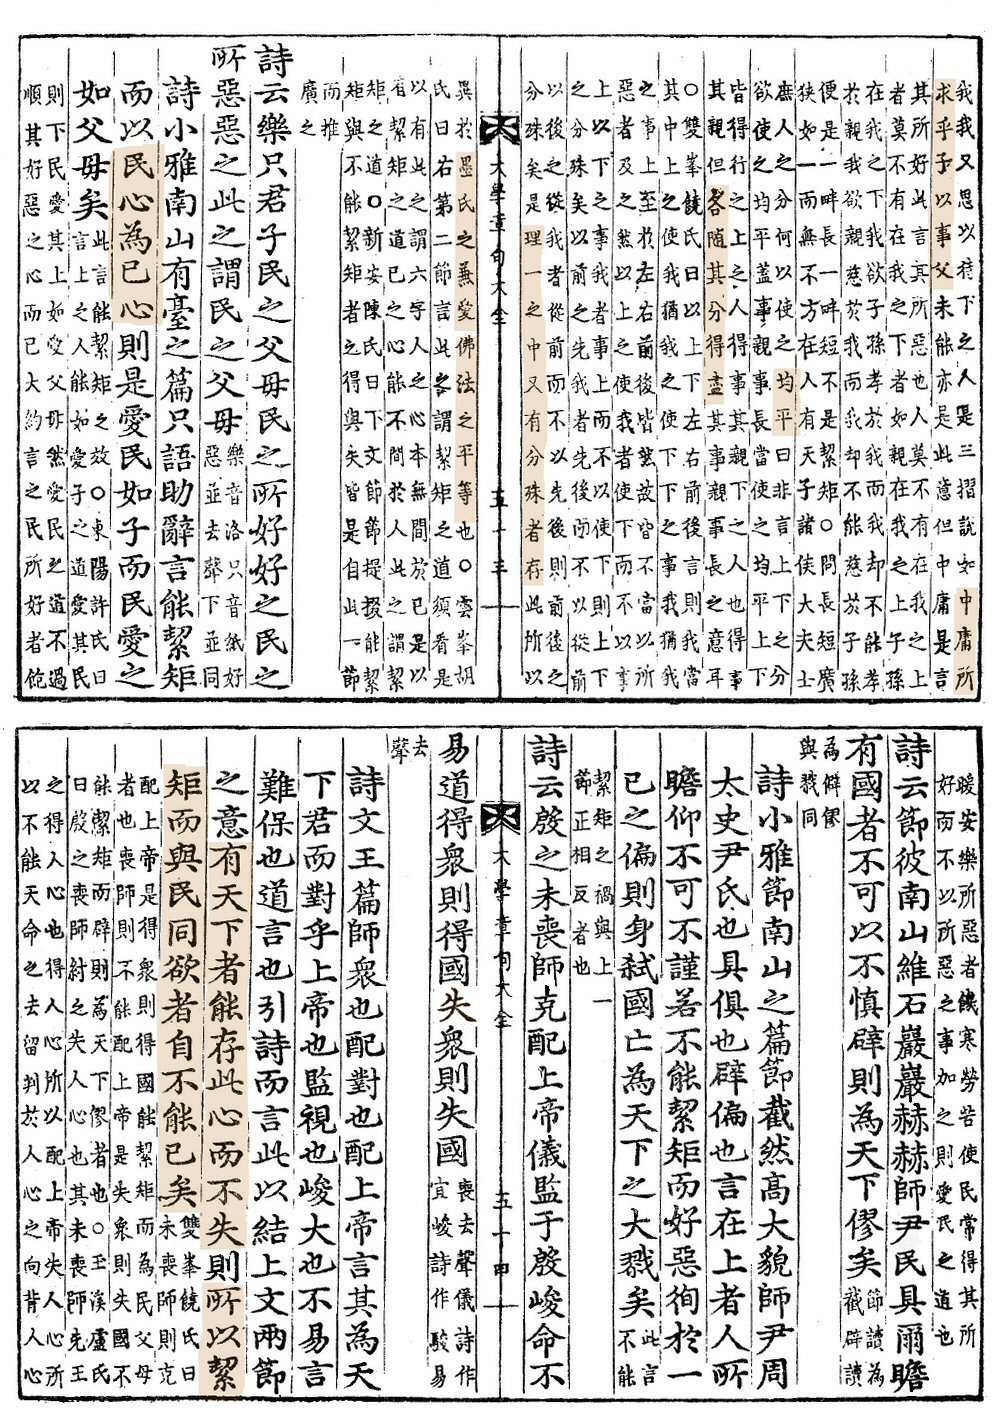 我我又思以待下之人是三摺說如中庸所
求乎子以事父未能亦是此意但中庸是言
其所好此言其所惡也人莫不有在我之上
者莫不有在我之下者如親在我之上子孫
在我之下我欲子孫孝於我而我却不能孝
於親我欲親慈於我而我却不能慈於子孫
便是一畔長一畔短不是絜矩○問長短廣
狹如一而無不方在人有天子諸侯大夫士
庶人之分何以使之均平曰非是言上下之分
欲使之均平蓋事親事長當使之均平上下
皆得行之上之人得事其親下之人也得事
其親但各隨其分得盡其事親事長之意耳
○雙峯饒氏曰以上下左右前後言則我當
其中上之使我猶我之使下下之事我猶我
之事上至於左右前後皆然故皆不當以所
惡者及之然以上之使我者使下而不以事
上以下之事我者事上而不以使下則上下
之分殊矣以前之先我者先後而不以從前
以後之從我者從前而不以先後則前後之
分殊矣是理一之中又有分殊者存此所以
大學章句大全
五十三
異於墨氏之兼愛佛法之平等也○雲峯胡
氏曰右第二節言此之謂絜矩之道須看是
以有此之謂六字人之心本無間於己是以
有絜矩之道己之心能不間於人此之謂絜
矩之道○新安陳氏曰下文節節提掇能絜
矩與不能絜矩者之得與失皆是自此一節
而推
廣之
詩云樂只君子民之父母民之所好好之民之
所惡惡之此之謂民之父母樂音洛只音紙好
惡並去聲下並同
詩小雅南山有臺之篇只語助辭言能絜矩
而以民心為己心則是愛民如子而民愛之
如父母矣此言能絜矩之效○東陽許氏曰
上之人能如愛子之道愛其民
則下民愛其上如愛父母然愛民之道不過
順其好惡之心而已大約言之民所好者飽
煖安樂所惡者饑寒勞苦使民常得其所
好而不以所惡之事加之則愛民之道也
詩云節彼南山維石巖巖赫赫師尹民具爾瞻
有國者不可以不慎辟則為天下僇矣節讀為
截辟讀
為僻僇
與戮同
詩小雅節南山之篇節截然高大貌師尹周
太史尹氏也具俱也辟偏也言在上者人所
瞻仰不可不謹若不能絜矩而好惡徇於一
己之偏則身弒國亡為天下之大戮矣此言
不能
絜矩之禍與上一
節正相反者也
詩云殷之未喪師克配上帝儀監于殷峻命不
大學章句大全
五十四
易道得衆則得國失衆則失國喪去聲儀詩作
宜峻詩作駿易
去
聲
詩文王篇師衆也配對也配上帝言其為天
下君而對乎上帝也監視也峻大也不易言
難保也道言也引詩而言此以結上文兩節
之意有天下者能存此心而不失則所以絜
矩而與民同欲者自不能已矣雙峯饒氏曰
未喪師則克
配上帝是得衆則得國能絜矩而為民父母
者也喪師則不能配上帝是失衆則失國不
能絜矩而辟則為天下僇者也○玉溪盧氏
曰殷之喪師紂之失人心也其未喪師先王
之得人心也得人心所以配上帝失人心所
以不能天命之去留判於人心之向背人心